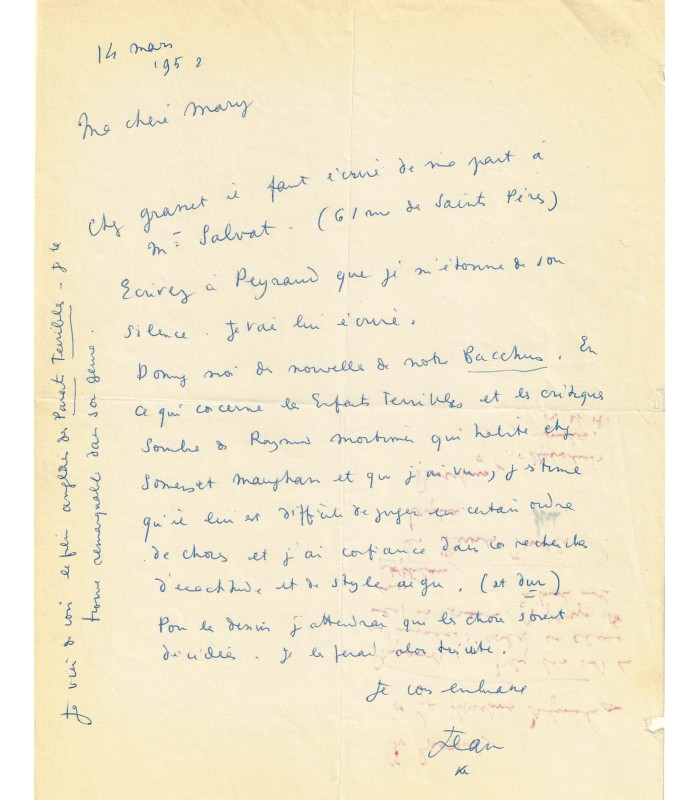 14 mars
195
Ma chère Mary
Chez Grasset il faut écrire de ma part à
Mme Salvat. (61 rue de Saints Pères)
Ecrivez à Peyraud que je m'étonne de son
silence. Je vais lui écrire.
Donnez moi de nouvelle de notre Bacchus. En
ce qui concerne les Enfants Terribles et les critiques
de Raymond Mortimer qui habite chez
Somerset Maugham et que j'ai vu, j'estime
qu'il lui est difficile de juger un certain ordre
de choses et j'ai confiance dans vos recherches
d'exactitude et de style aigu. (et dur)
Pour les dessins j'attendrai que les choses soient
décidées. Je les ferai alors de suite.
Je vous embrasse
Jean
Je viens de voir le film anglais des Parents Terribles - je le
trouve remarquable dans son genre.